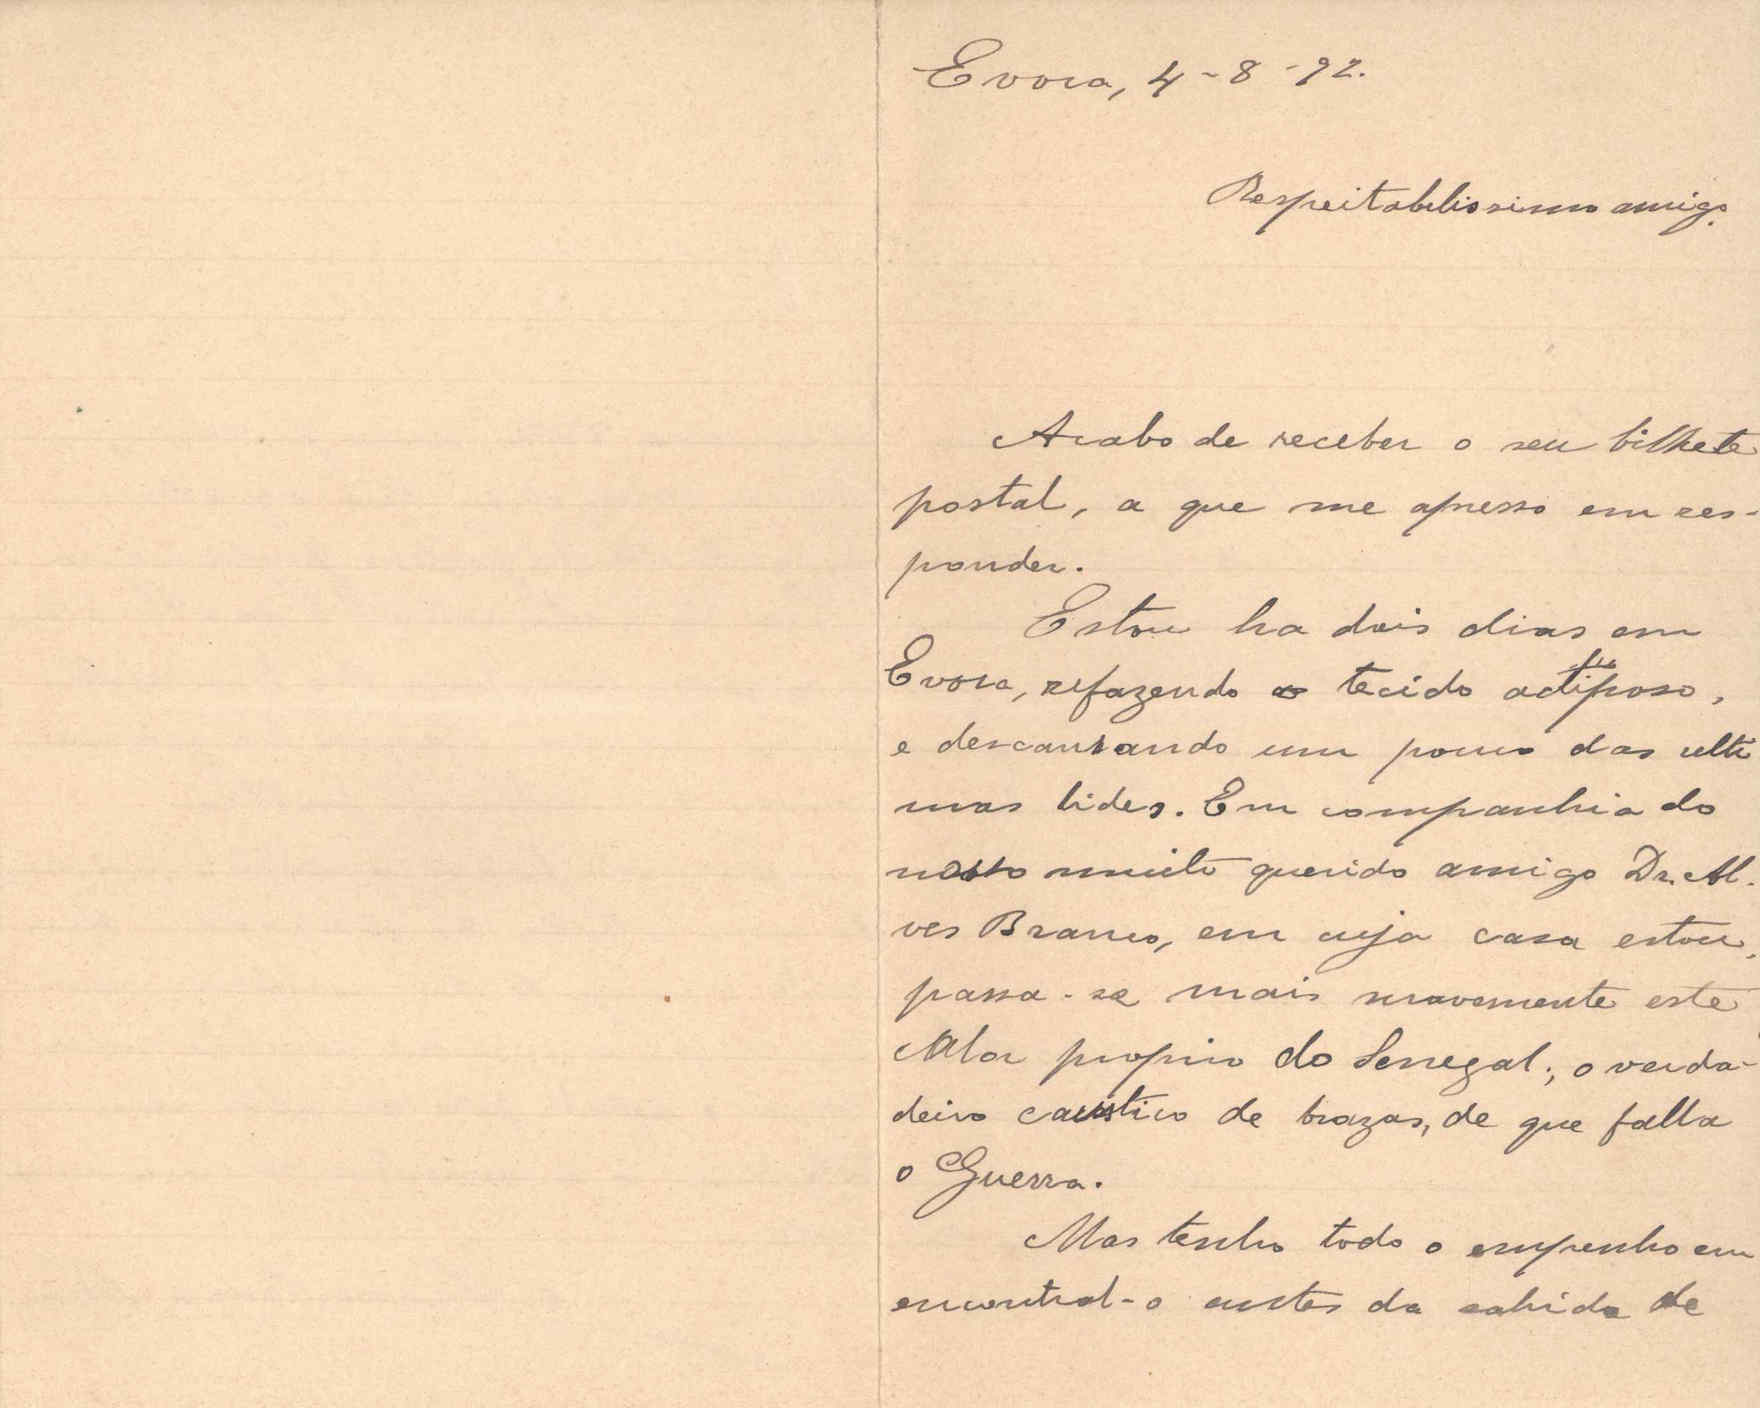 Evora, 4-8-92.
Respeitabilissimo amigo.
Acabo de receber o seu bilhete
postal, a que me apresso em res-
ponder.
Estou ha dois dias em
Evora, refazendo o tecido adiposo,
e descansando um pouco das ulti
mas lides. Em companhia do
nosso muito querido amigo Dr. Al-
ves Branco, em cuja casa estou,
passa-se mais suavemente este
calor proprio do Senegal; o verda-
deiro caustico de brazas, de que falla
o Guerra.
Mas tenho todo o empenho em
encontral-o antes da sahida de